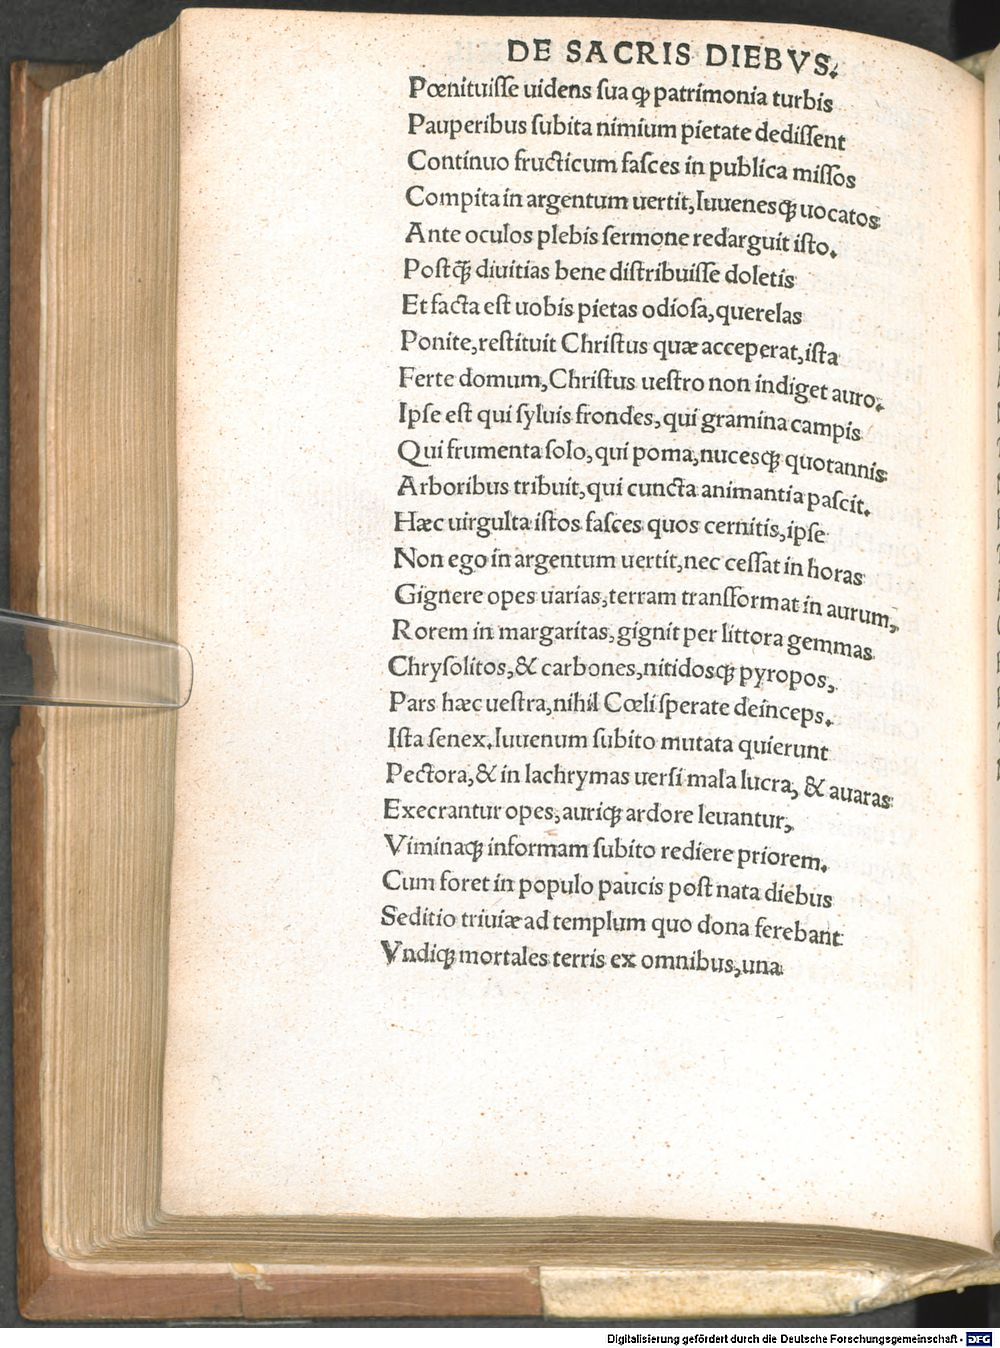 DE SACRIS DIEBVS.
Pœnituiſſe uidens ſua ꝙ patrimonia turbis
Pauperibus ſubita nimium pietate dediſſent
Continuo fructicum faſces in publica miſſos
Compita in argentum uertit, Iuuenesqꝫ uocatos
Ante oculos plebis ſermone redarguit iſto.
Poſtqꝫ̃ diuitias bene diſtribuiſſe doletis
Et facta eſt uobis pietas odioſa, querelas
Ponite, reſtituit Chriſtus quæ acceperat, iſta
Ferte domum, Chriſtus ueſtro non indiget auro.
Ipſe eſt qui ſyluis frondes, qui gramina campis
Qui frumenta ſolo, qui poma, nucesqꝫ quotannis
Arboribus tribuit, qui cuncta animantia paſcit.
Hæc uirgulta iſtos faſces quos cernitis, ipſe
Non ego in argentum uertit, nec ceſſat in horas
Gignere opes uarias, terram tranſformat in aurum,
Rorem in margaritas, gignit per littora gemmas
Chryſolitos, & carbones, nitidosqꝫ pyropos,
Pars hæc ueſtra, nihil Cœli ſperate deinceps.
Iſta ſenex. Iuuenum ſubito mutata quierunt
Pectora, & in lachrymas uerſi mala lucra, & auaras
Execrantur opes, auriqꝫ ardore leuantur,
Viminaqꝫ informam ſubito rediere priorem.
Cum foret in populo paucis poſt nata diebus
Seditio triuiæ ad templum quo dona ferebant
Vndiqꝫ mortales terris ex omnibus, una
Digitalisierung gefördert durch die Deutsche Forschungsgemeinschaft - DFG